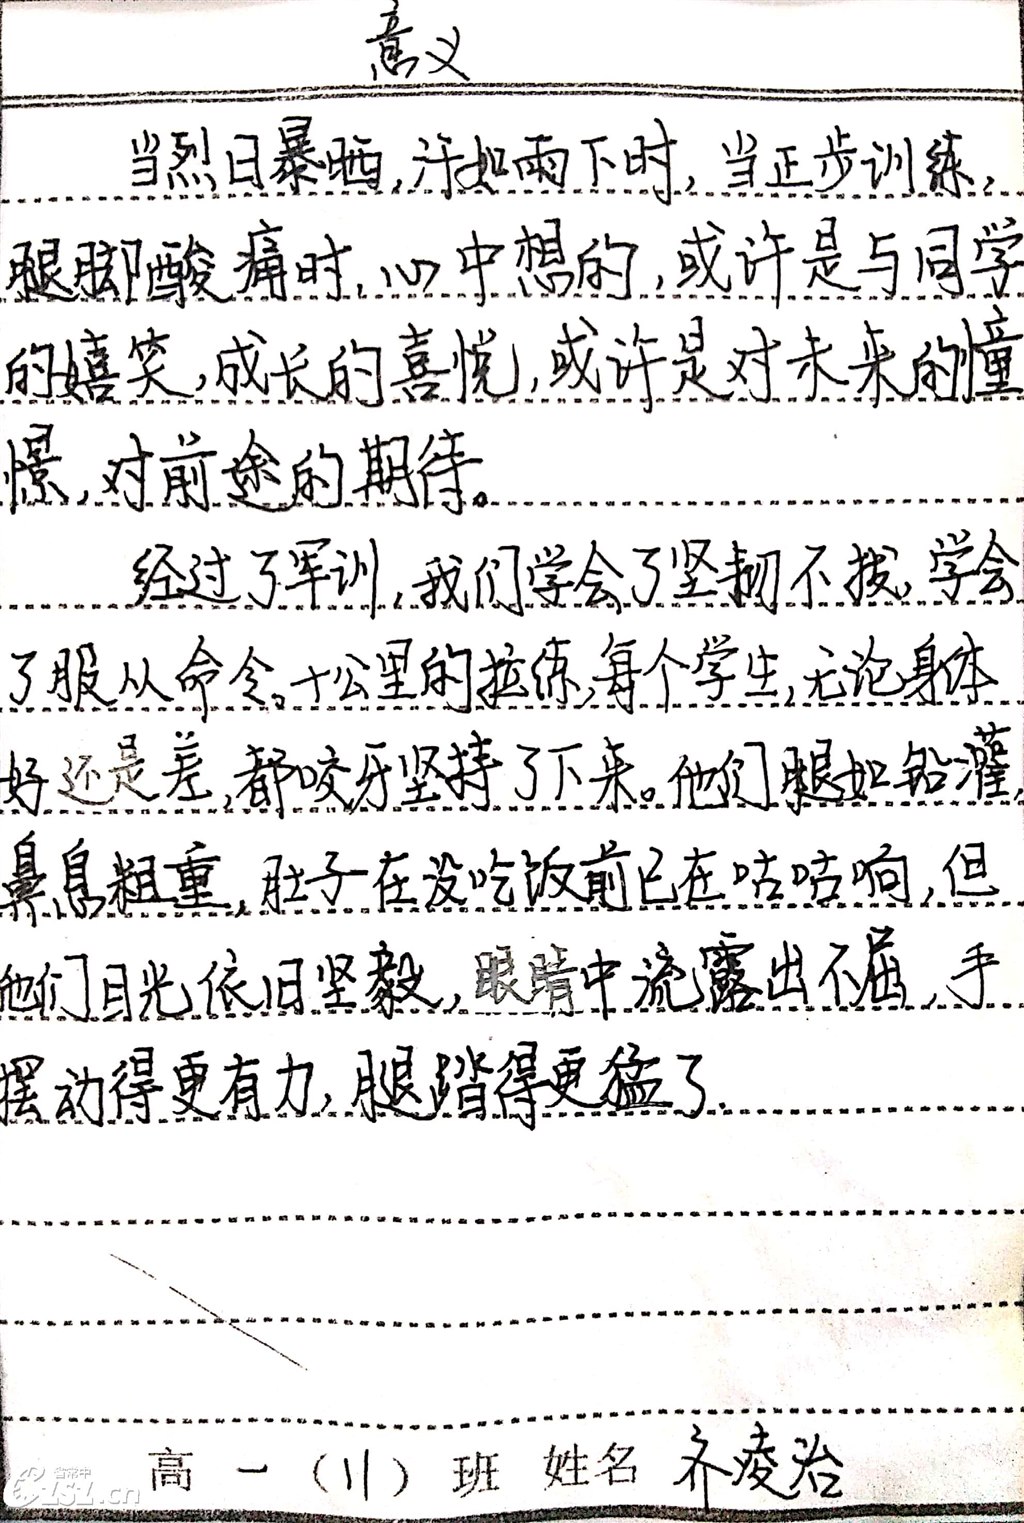 意义
当烈日暴晒,汗如雨下时,当正步训练,
腿脚酸痛时,心中想的,或许是与同学
的嬉笑,成长的喜悦,或许是对未来的憧
憬,对前途的期待。
经过了军训,我们学会了坚韧不拔,学会
了服从命令。十公里的拉练,每个学生,无论身体
好还是差,都咬牙坚持了下来。他们腿如铅灌,
鼻息粗重,肚子在没吃饭前已在咕咕响,但
他们目光依旧坚毅,眼睛中流露出不屈,手
摆动得更有力,腿踏得更猛了.
高一(11)班 姓名 齐凌治
省常中
CSZ.cn